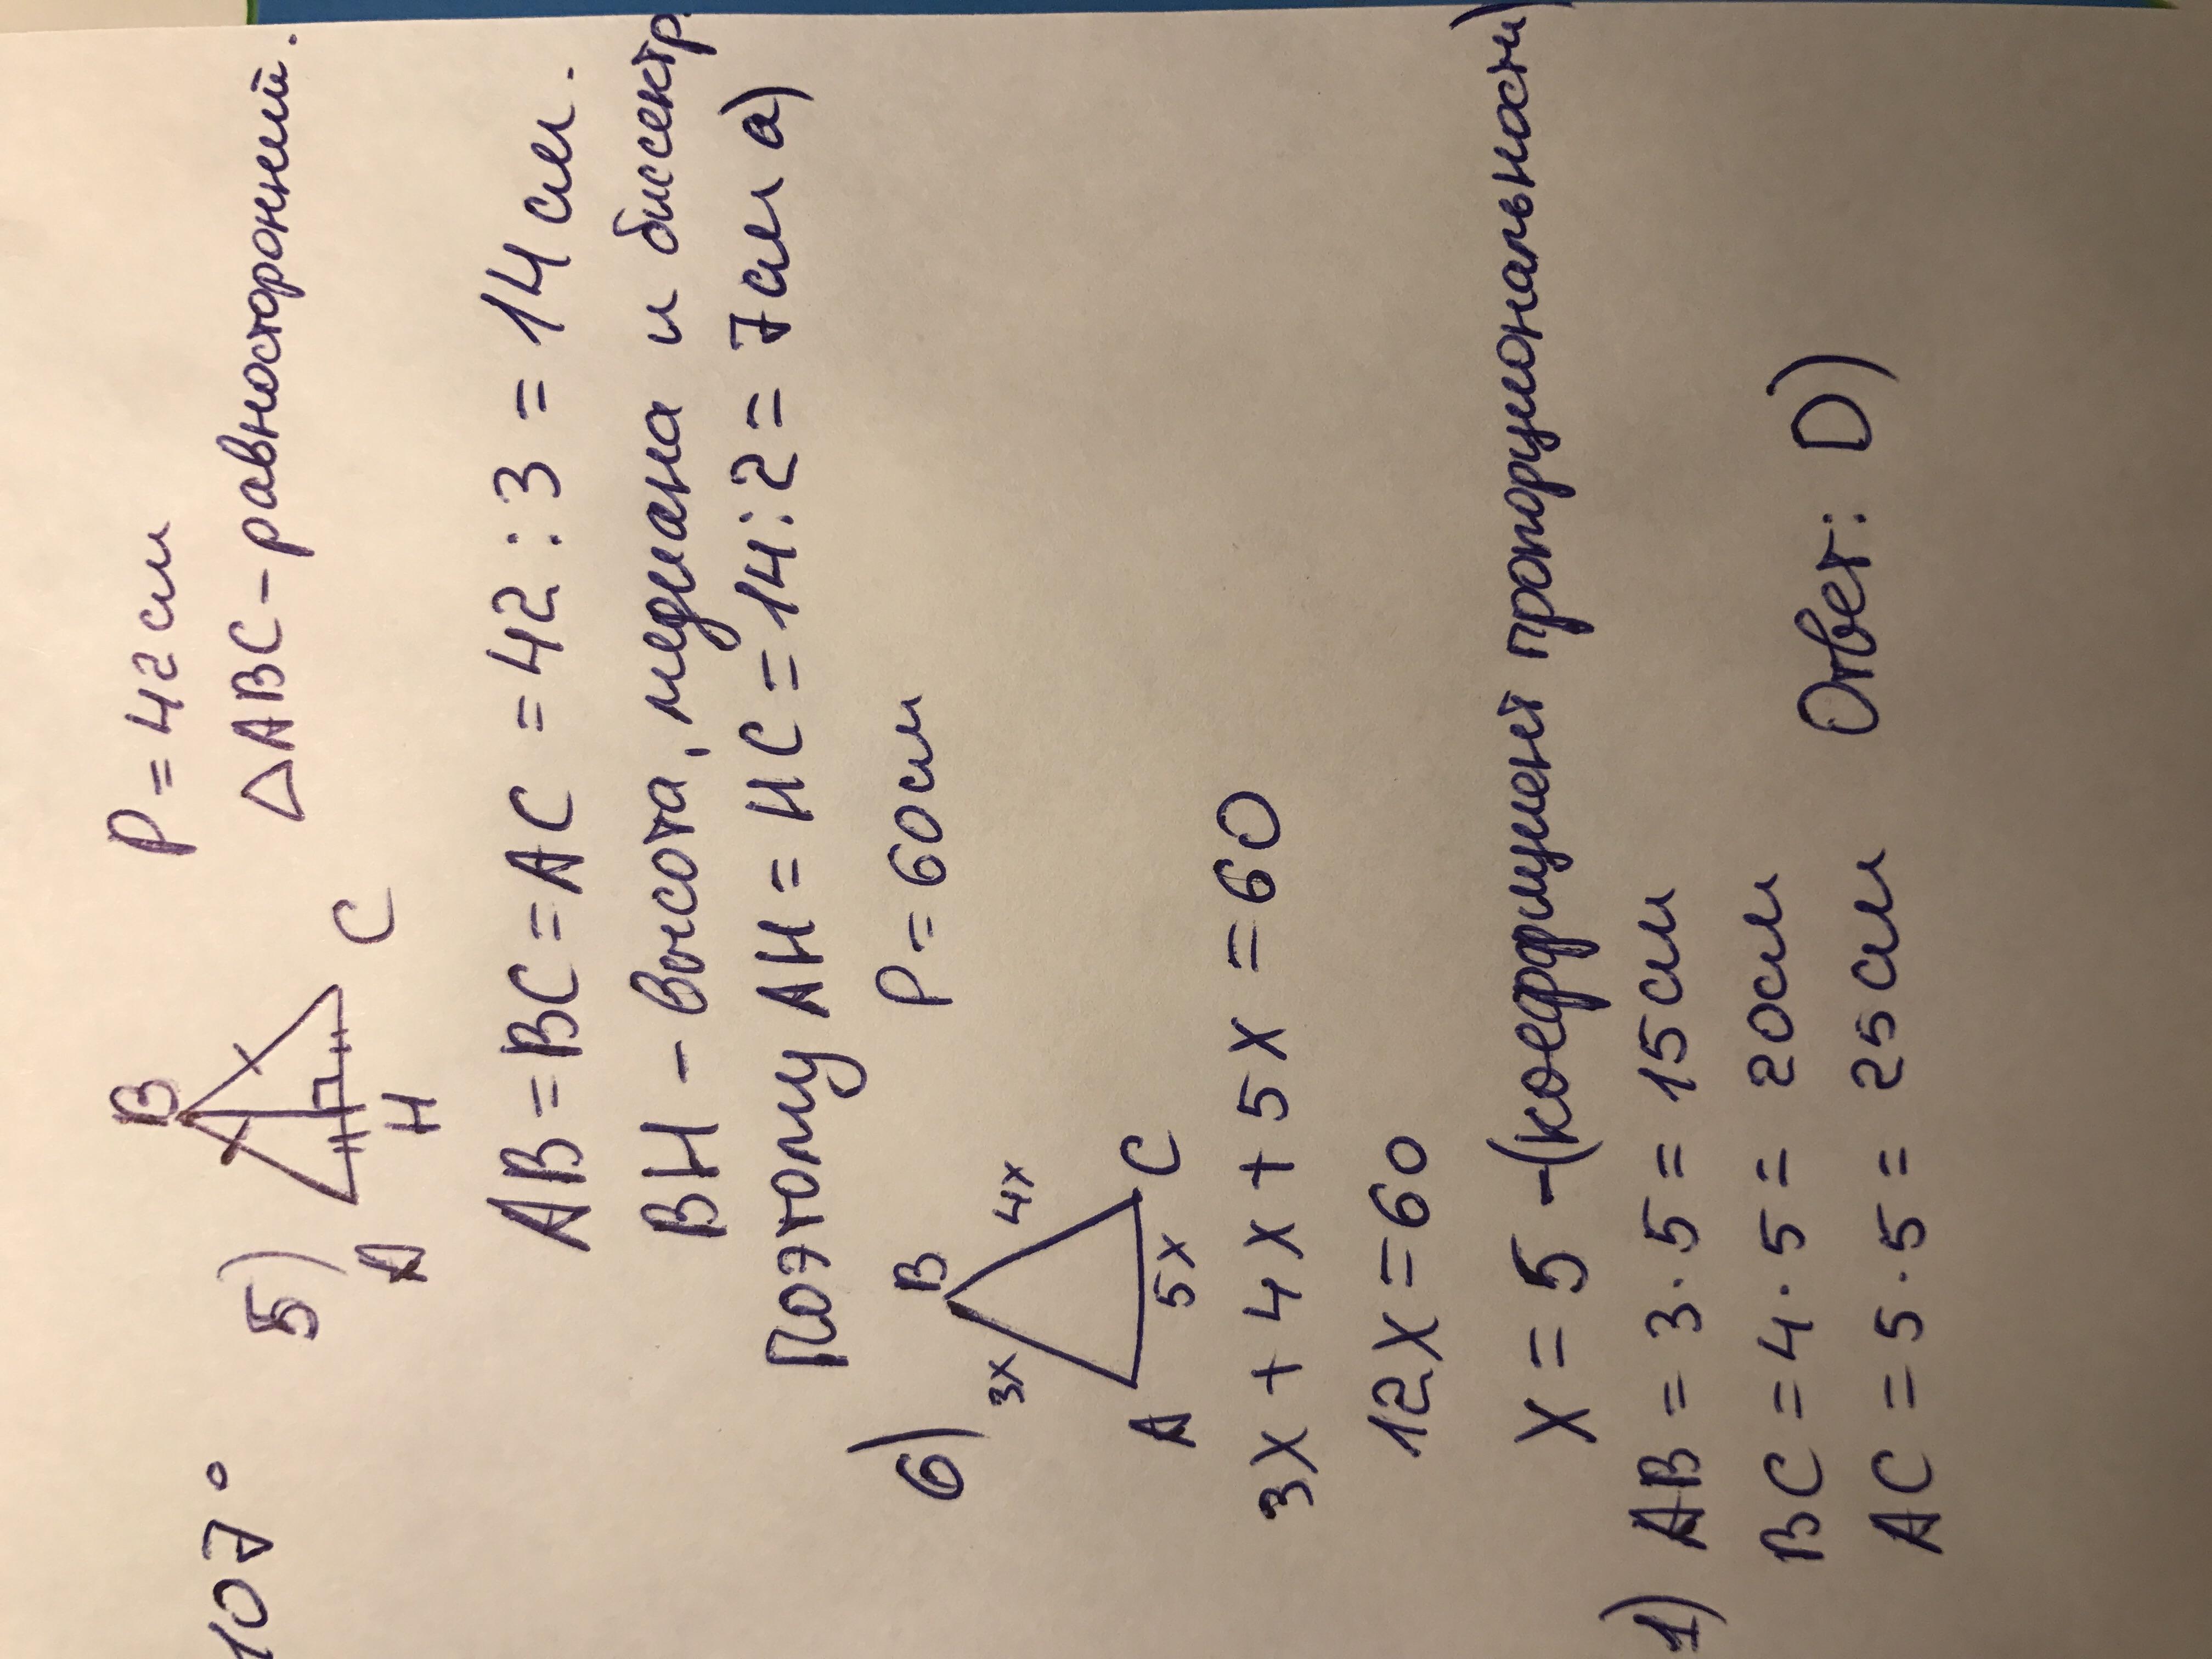 107°
5)
B
A
H
C
P = 42 см
△ABC - равносторонний.
AB = BC = AC = 42 : 3 = 14 см.
BH - высота, медиана и биссектр
Поэтому AH = HC = 14 : 2 = 7 см а)
6)
3x
B
4x
A
5x
C
P = 60 см
3x + 4x + 5x = 60
12x = 60
x = 5 -(коеффициент пропорциональности)
1) AB = 3 · 5 = 15 см
BC = 4 · 5 = 20 см
AC = 5 · 5 = 25 см Ответ: D)